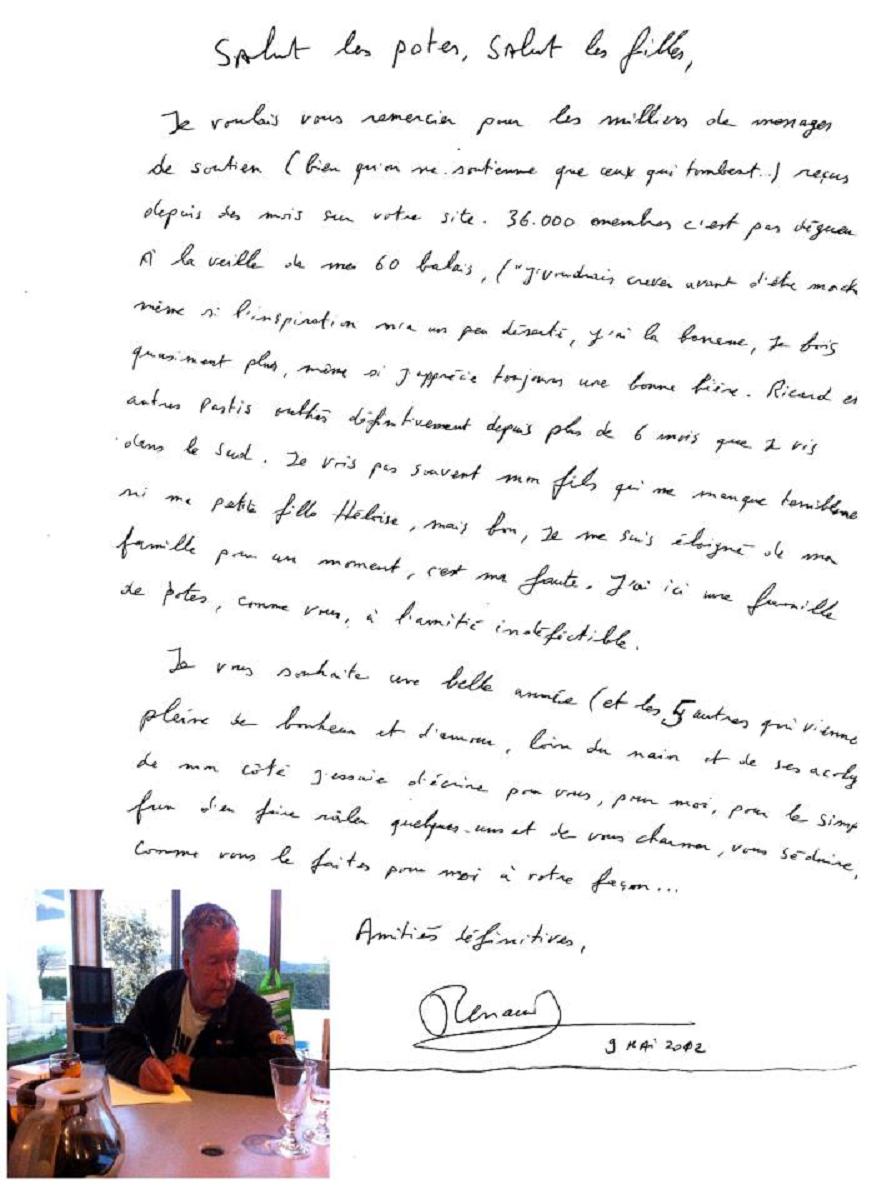 Salut les potes, Salut les filles,
Je voulais vous remercier pour les milliers de messages
de soutien (bien qu'on ne soutienne que ceux qui tombent..) reçus
depuis des mois sur votre site. 36.000 membres c'est pas dégueu
A la veille de mes 60 balais, ("J'voudrais crever avant d'être moch
même si l'inspiration m'a un peu déserté, j'ai la banane, Je bois
quasiment plus, même si j'apprécie toujours une bonne bière. Ricard et
autres Pastis oubliés définitivement depuis plus de 6 mois que je vis
dans le Sud. Je vois pas souvent mon fils qui me manque terribleme
ni ma petite fille Héloïse, mais bon, Je me suis éloigné de ma
famille pour un moment, c'est ma faute. J'ai ici une famille
de potes, comme vous, à l'amitié indéfectible.
Je vous souhaite une belle année (et les 5 autres qui vienne
pleine de bonheur et d'amour, loin du nain et de ses acoly
de mon côté j'essaie d'écrire pour vous, pour moi, pour le simp
fun d'en faire râler quelques-uns et de vous charmer, vous séduire,
Comme vous le faites pour moi à votre façon...
Amitiés définitives,
Renaud
9 MAI 2012